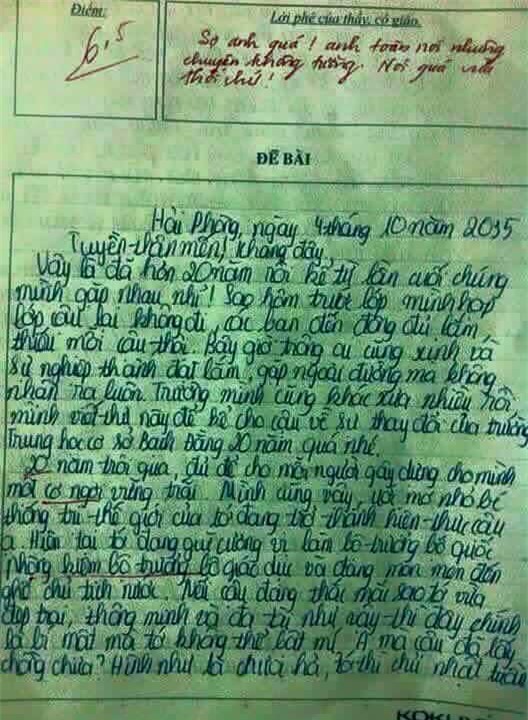 Điểm:
Lời phê của thầy, cô giáo
6,5
Sợ anh quá! anh toàn nói những
chuyện không tưởng. Nói quá vừa
thôi chứ!
ĐỀ BÀI
Hải Phòng, ngày 4 tháng 10 năm 2035
Tuyền thân mến, Khang đây
Vậy là đã hơn 20 năm rồi kể từ lần cuối chúng
mình gặp nhau nhỉ! Sao hôm trước lớp mình họp
lớp cậu lại không đi, các bạn đến đông đủ lắm,
thiếu mỗi cậu thôi. Bây giờ trông ai cũng xinh và
sự nghiệp thành đạt lắm, gặp ngoài đường mà không
nhận ra luôn. Trường mình cũng khác xưa nhiều rồi
mình viết thư này để kể cho cậu về sự thay đổi của trường
Trung học cơ sở Bạch Đằng 20 năm quá nhé.
20 năm trôi qua đủ để cho mỗi người gây dựng cho mình
một cơ ngơi vững trãi. Mình cũng vậy, ước mơ nhỏ bé
thống trị thế giới của tớ đang trở thành hiện thực cậu
ạ. Hiện tại tớ đang quỉ cường vì làm bộ trưởng bộ quốc
phòng kiêm bộ trưởng bộ giáo dục và đang mon men đến
ghế chủ tịch nước. Nếu cậu đang thắc mắc sao tớ vừa
đẹp trai, thông minh và đa tài như vậy thì đây chính
là bí mật mà tớ không thể bật mí. À mà cậu đã lấy
chồng chưa? Hình như là chưa hả, tớ thì chủ nhật tuần